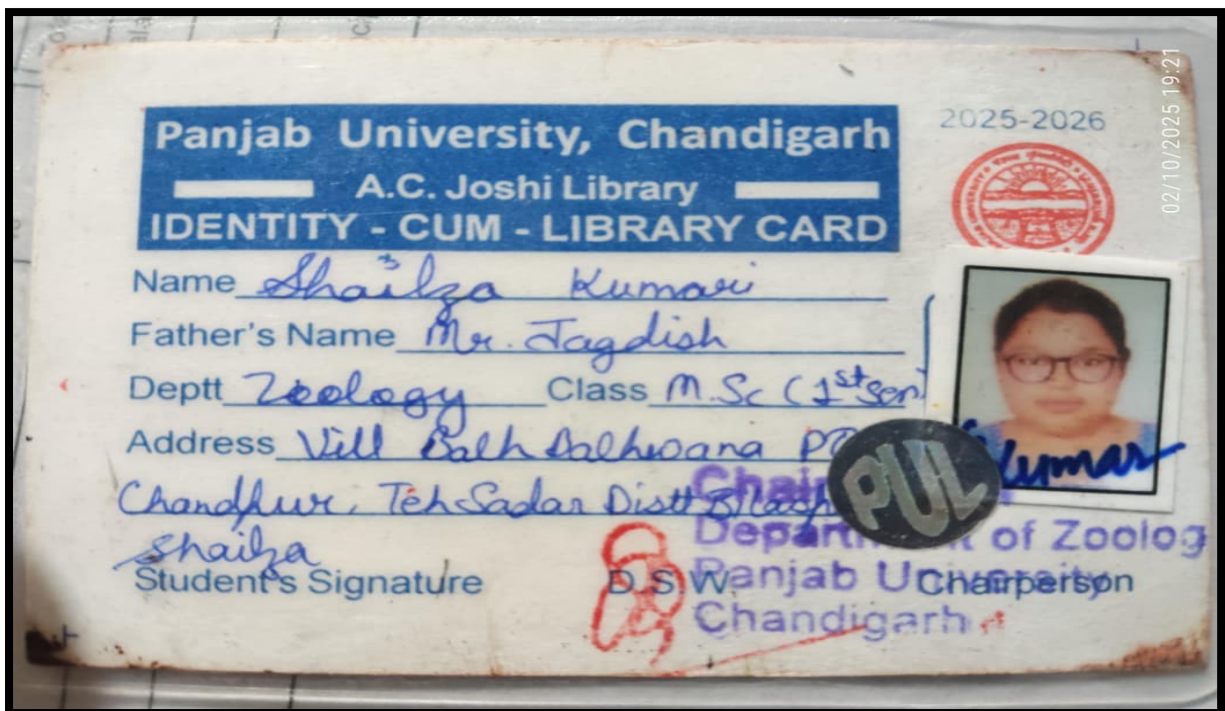 Panjab University, Chandigarh
2025-2026
A.C. Joshi Library
IDENTITY - CUM - LIBRARY CARD
Name Shailza Kumari
Father's Name Mr. Jagdish
Deptt Zoology Class M.Sc (1st sem)
Address Vill Balh
Chandpur, Teh Sadar Distt
PUL
Kumar
Shailza
Student's Signature D S W Chairperson
Department of Zoology
Panjab University
Chandigarh
02/10/2025 19:21